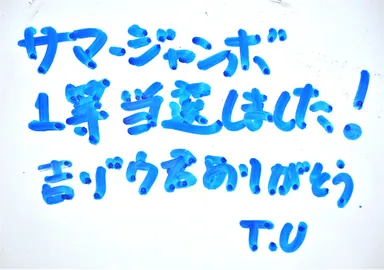 サマージャンボ
1等当選しました!
吉ゾウ君ありがとう
T.U